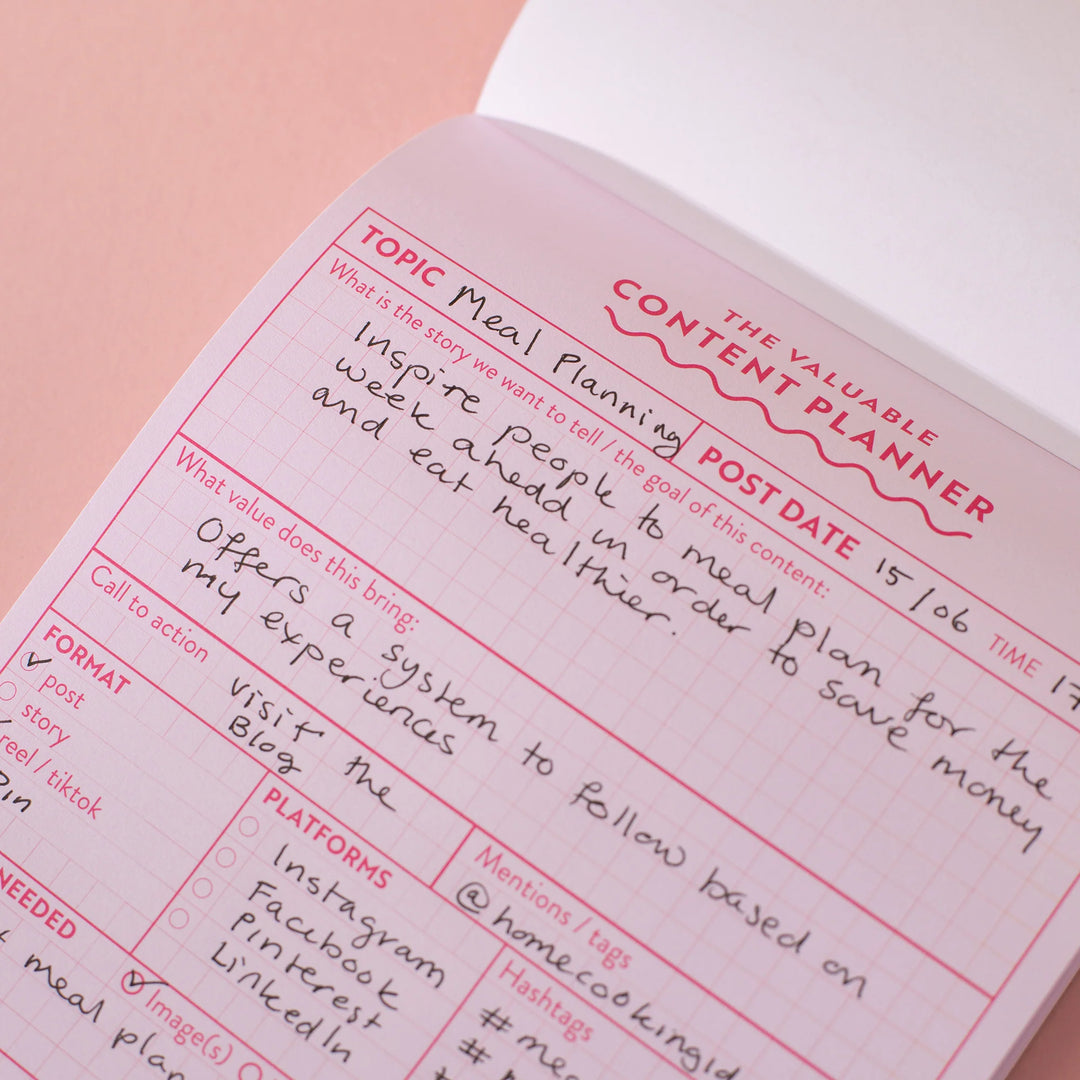 THE VALUABLE
CONTENT PLANNER
TOPIC Meal Planning
POST DATE 15/06 TIME 17
What is the story we want to tell / the goal of this content:
Inspire people to meal plan for the
week ahedd in order to save money
and eat healthier.
What value does this bring:
Offers a system to follow based on
my experiences
Call to action
Visit the
Blog
Mentions / tags
@homecookingid
FORMAT
post
story
reel / tiktok
Pin
PLATFORMS
Instagram
Facebook
Pinterest
LinkedIn
Hashtags
#me
#
NEEDED
Image(s)
meal plan